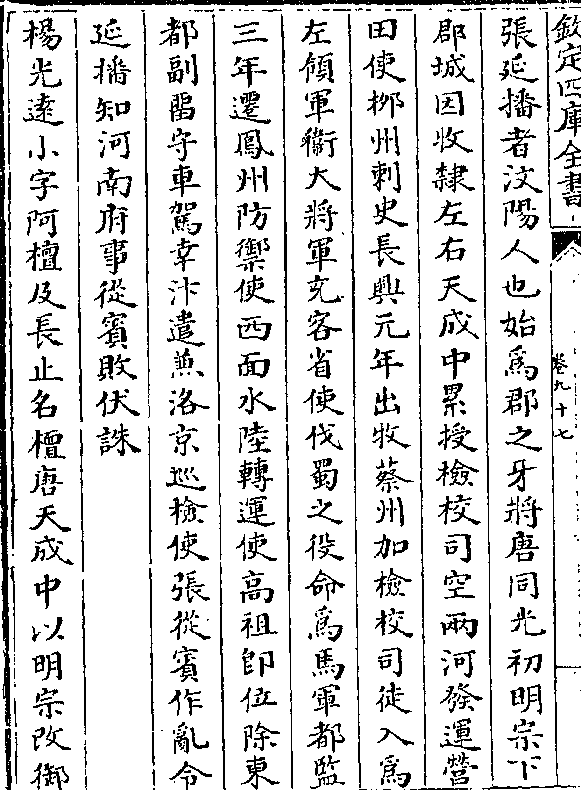 欽定四庫全書
卷九十七
張延播者汶陽人也始為郡之牙將唐同光初明宗下
郡城因收隸左右天成中累授檢校司空兩河發運營
田使栁州刺史長興元年出牧蔡州加檢校司徒入為
左領軍衛大將軍充客省使伐蜀之役命為馬軍都監
三年遷鳳州防禦使西面水陸轉運使高祖即位除東
都副留守車駕幸汴遣兼洛京巡檢使張從賓作亂令
延播知河南府事從賓敗伏誅
楊光遠小字阿檀及長止名檀唐天成中以明宗改御